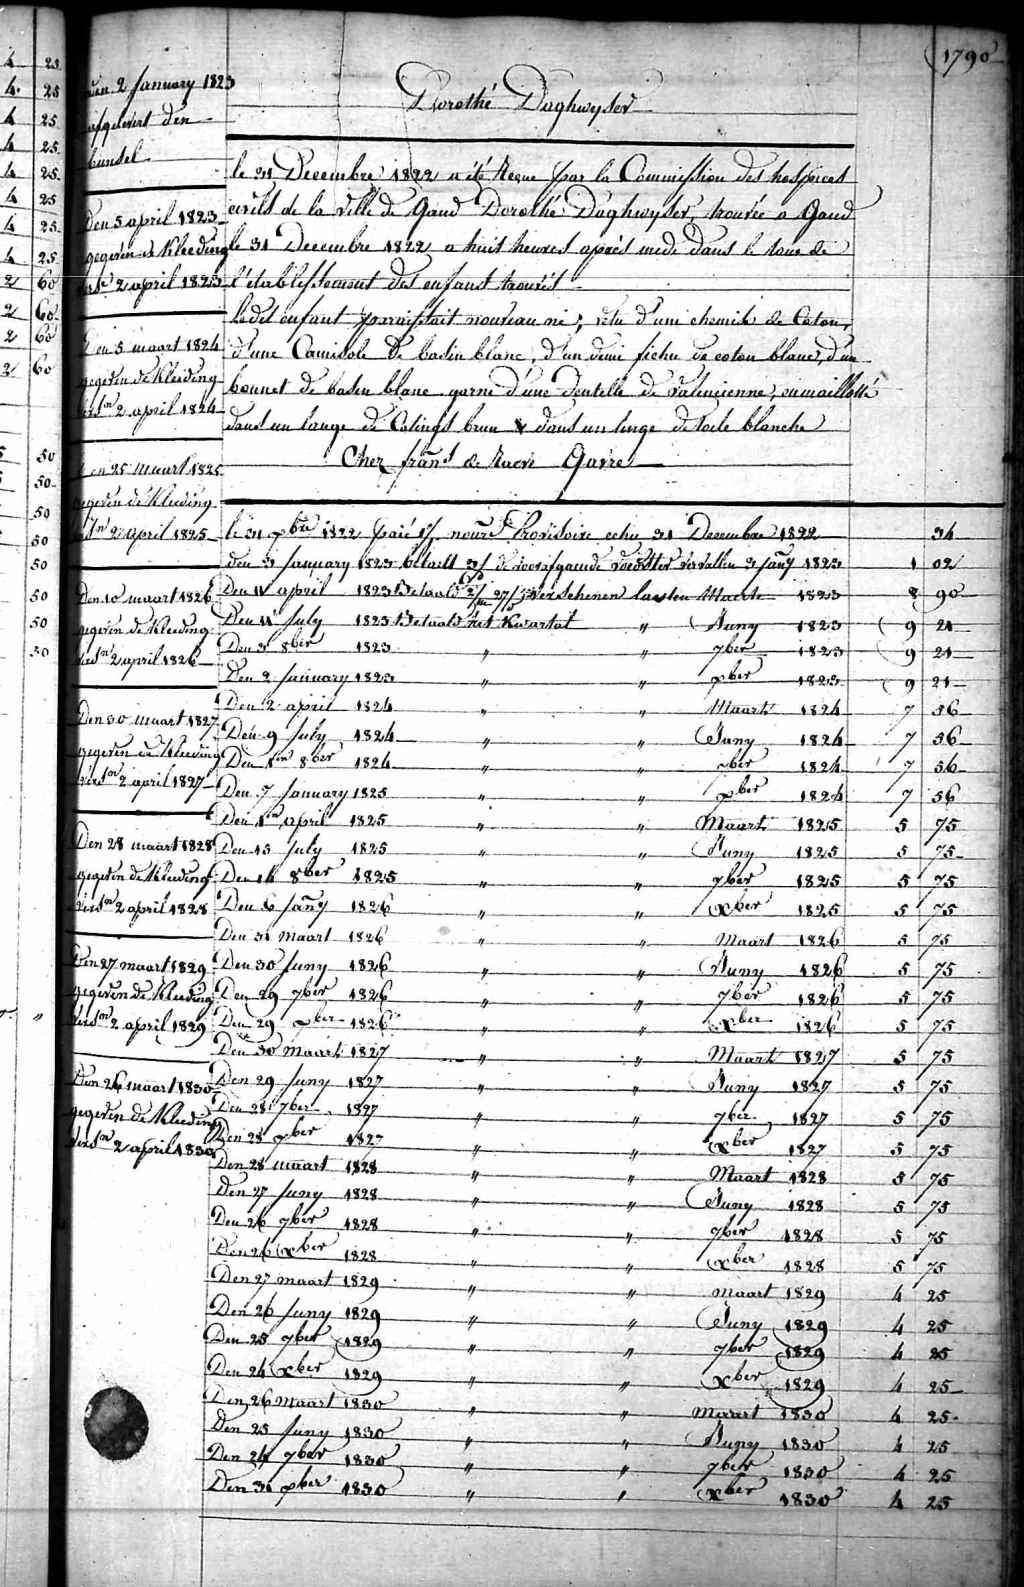 1790
Dorothé Daghwyser
le 31 Decembre 1822 a été Reçue par la Commission des hospices
civils de la ville de Gand Dorothé Daghwyser, trouvée a Gand
le 31 Decembre 1822 a huit heures aprés midi dans le tour de
l'établissement des enfans trouvés
Ledit enfant paraissait nouveau né, vetu d'une chemise de Coton,
d'une Camisole de basin blanc, d'un demi fichu de coton blanc, d'un
bonnet de basin blanc garni d'une dentelle de valencienne, emmaillotté
dans un lange de brun & dans un linge de toile blanche
Chez frans de Gavre
den 2 January 1823
afgelevert den
bunsel
Den 5 april 1823
gegeven de Kleeding
vers 2 april 1823
Den 5 maart 1824
gegeven de Kleeding
versn 2 april 1824
Den 25 maart 1825
gegeven de Kleeding
versn 2 april 1825
Den 10 maart 1826
gegeven de Kleeding
versn 2 april 1826
Den 30 maart 1827
gegeven de Kleeding
versn 2 april 1827
Den 28 maart 1828
gegeven de Kleeding
versn 2 april 1828
Den 27 maart 1829
gegeven de Kleeding
versn 2 april 1829
Den 26 maart 1830
gegeven de Kleeding
versn 2 april 1830
le 31 xbre 1822 paié Provisoire echu 31 Decembre 1822 34
den 3 January 1823 betaelt vervallen 3 Jany 1823 1 02
Den 11 april 1823 Betaald verschenen lasten Maerte 1823 8 90
Den 11 July 1823 Betaald het Kwartal " Juny 1823 9 21
Den 3 8ber 1823 " " 7ber 1823 9 21
Den 2 January 1823 " " xber 1823 9 21
Den 2 april 1824 " " Maart 1824 7 56
Den 9 July 1824 " " Juny 1824 7 56
Den 1en 8ber 1824 " " 7ber 1824 7 56
Den 7 January 1825 " " xber 1824 7 56
Den 1en april 1825 " " Maart 1825 5 75
Den 15 July 1825 " " Juny 1825 5 75
Den 14 8ber 1825 " " 7ber 1825 5 75
Den 6 Jany 1826 " " xber 1825 5 75
Den 31 Maart 1826 " " Maart 1826 5 75
Den 30 Juny 1826 " " Juny 1826 5 75
Den 29 7ber 1826 " " 7ber 1826 5 75
Den 29 xber 1826 " " xber 1826 5 75
Den 30 Maart 1827 " " Maart 1827 5 75
Den 29 Juny 1827 " " Juny 1827 5 75
Den 28 7ber 1827 " " 7ber 1827 5 75
Den 28 xber 1827 " " xber 1827 5 75
Den 28 maart 1828 " " Maart 1828 5 75
Den 27 Juny 1828 " " Juny 1828 5 75
Den 26 7ber 1828 " " 7ber 1828 5 75
Den 26 xber 1828 " " xber 1828 5 75
Den 27 maart 1829 " " maart 1829 4 25
Den 26 Juny 1829 " " Juny 1829 4 25
Den 25 7ber 1829 " " 7ber 1829 4 25
Den 24 xber 1829 " " xber 1829 4 25
Den 26 Maart 1830 " " Maart 1830 4 25
Den 25 Juny 1830 " " Juny 1830 4 25
Den 24 7ber 1830 " " 7ber 1830 4 25
Den 31 xber 1830 " " xber 1830 4 25